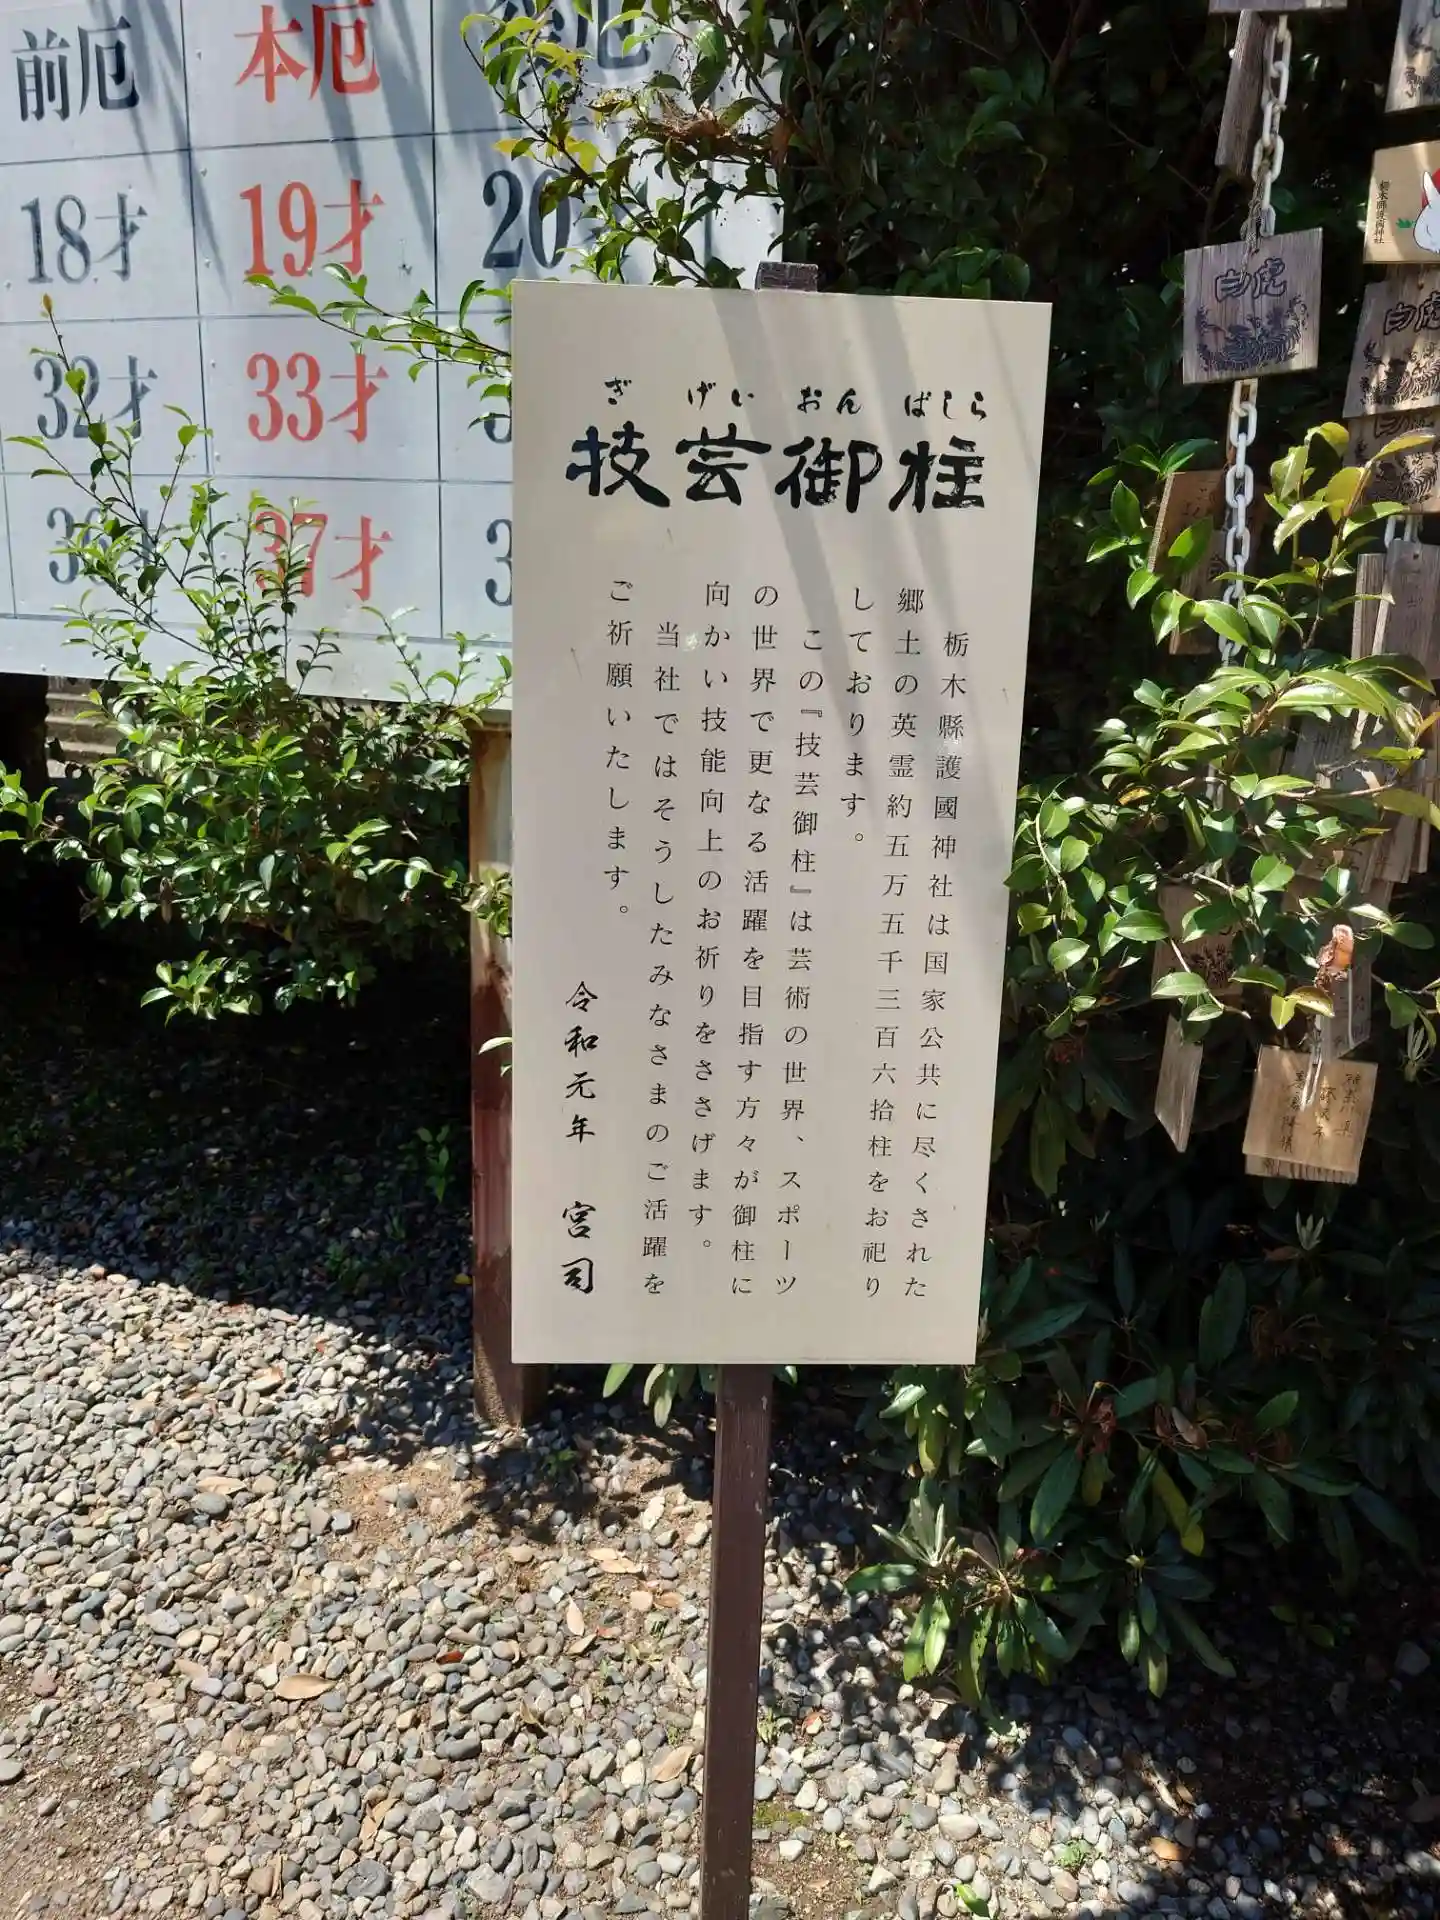 前厄 本厄
18才 19才 20
32才 33才
36才 37才
ぎ げい おん ばしら
技芸御柱
栃木縣護國神社は国家公共に尽くされた
郷土の英霊約五万五千三百六拾柱をお祀り
しております。
この『技芸御柱』は芸術の世界、スポーツ
の世界で更なる活躍を目指す方々が御柱に
向かい技能向上のお祈りをささげます。
当社ではそうしたみなさまのご活躍を
ご祈願いたします。
令和元年 宮司
白虎
白虎
栃木縣護國神社